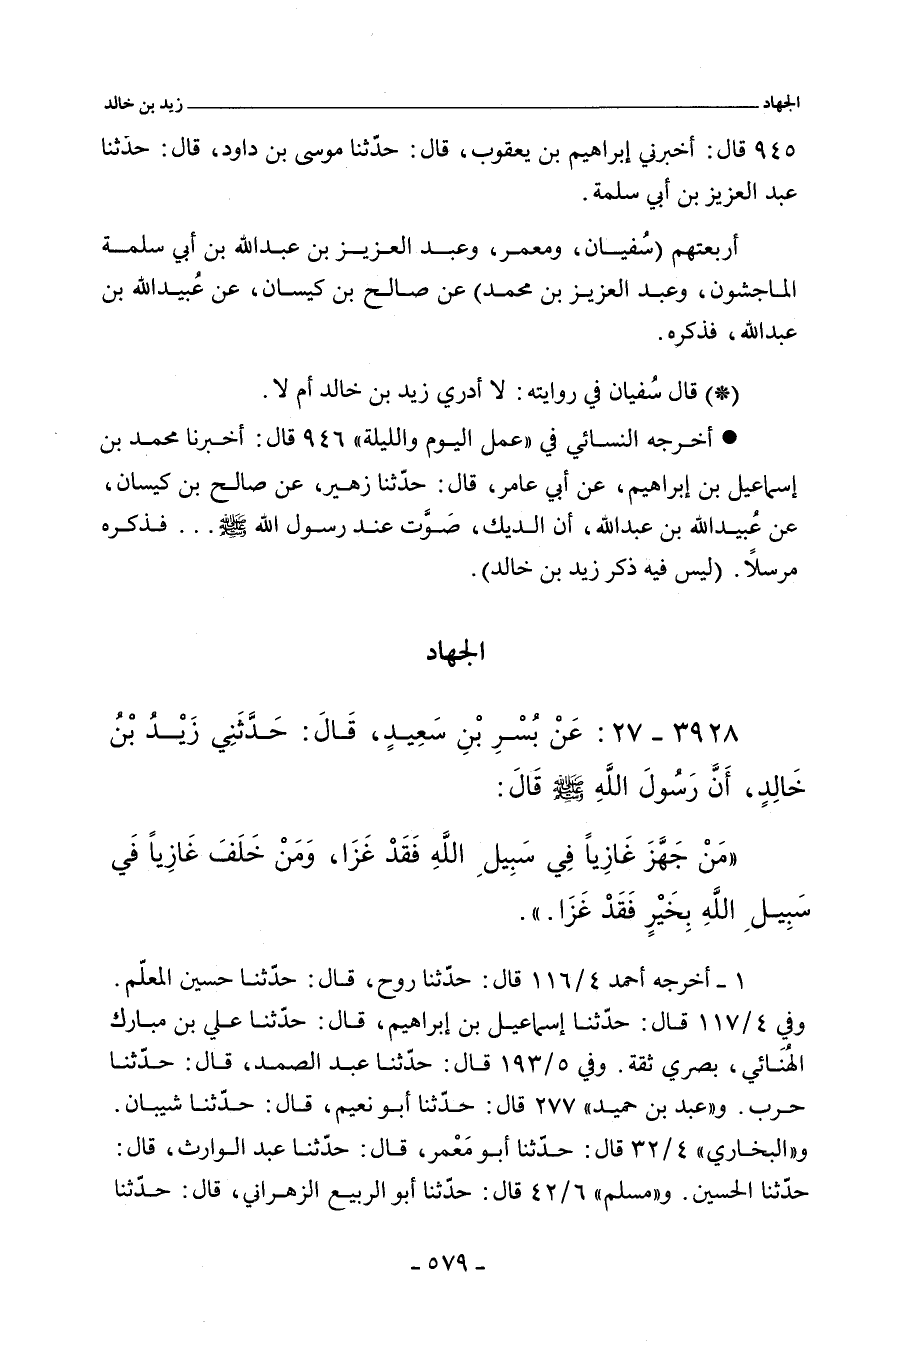 الجهاد زيد بن خالد
٩٤٥ قال: أخبرني إبراهيم بن يعقوب، قال: حدّثنا موسى بن داود، قال: حدّثنا
عبد العزيز بن أبي سلمة.
أربعتهم (سُفيان، ومعمر، وعبد العزيز بن عبدالله بن أبي سلمة
الماجشون، وعبد العزيز بن محمد) عن صالح بن كيسان، عن عُبيدالله بن
عبدالله، فذكره.
(*) قال سُفيان في روايته: لا أدري زيد بن خالد أم لا.
● أخرجه النسائي في «عمل اليوم والليلة» ٩٤٦ قال: أخبرنا محمد بن
إسماعيل بن إبراهيم، عن أبي عامر، قال: حدّثنا زهير، عن صالح بن كيسان،
عن عُبيدالله بن عبدالله، أن الديك، صَوَّت عند رسول الله ﷺ... فذكره
مرسلاً. (ليس فيه ذكر زيد بن خالد).
الجهاد
٣٩٢٨ - ٢٧: عَنْ بُسْرِ بْنِ سَعِيدٍ، قَالَ: حَدَّثَنِي زَيْدُ بْنُ
خَالِدٍ، أَنَّ رَسُولَ اللَّهِ ﷺ قَالَ:
«مَنْ جَهَّزَ غَازِياً فِي سَبِيلِ اللَّهِ فَقَدْ غَزَا، وَمَنْ خَلَفَ غَازِياً فِي
سَبِيلِ اللَّهِ بِخَيْرٍ فَقَدْ غَزَا.».
١ - أخرجه أحمد ١١٦/٤ قال: حدّثنا روح، قال: حدّثنا حسين المعلّم.
وفي ١١٧/٤ قال: حدّثنا إسماعيل بن إبراهيم، قال: حدّثنا علي بن مبارك
الهُنائي، بصري ثقة. وفي ١٩٣/٥ قال: حدّثنا عبد الصمد، قال: حدّثنا
حرب. و«عبد بن حميد» ٢٧٧ قال: حدّثنا أبو نعيم، قال: حدّثنا شيبان.
و«البخاري» ٣٢/٤ قال: حدّثنا أبو مَعْمر، قال: حدّثنا عبد الوارث، قال:
حدّثنا الحسين. و«مسلم» ٤٢/٦ قال: حدّثنا أبو الربيع الزهراني، قال: حدّثنا
- ٥٧٩ -